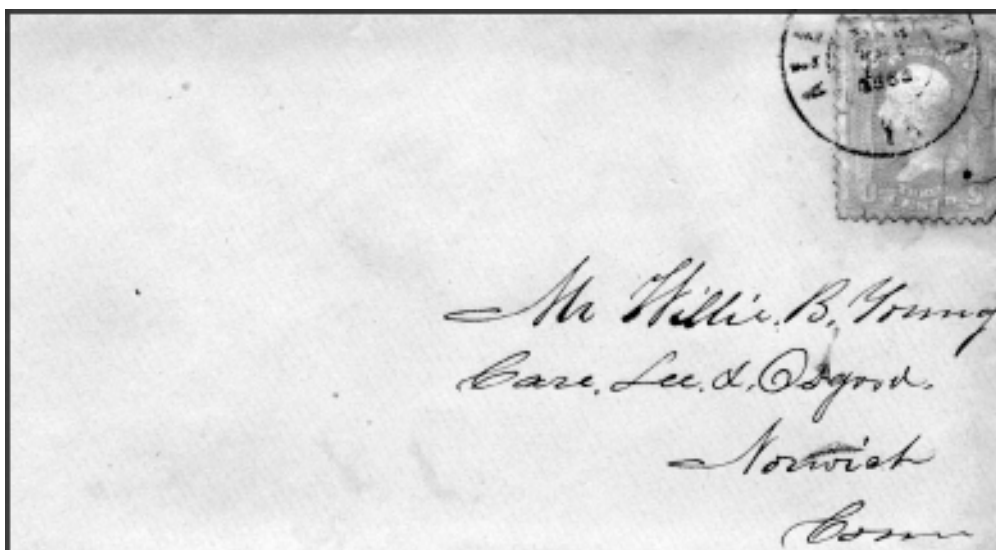 Mr Willie. B. Young
Care, Lee. &. Osgood.
Norwich
Conn